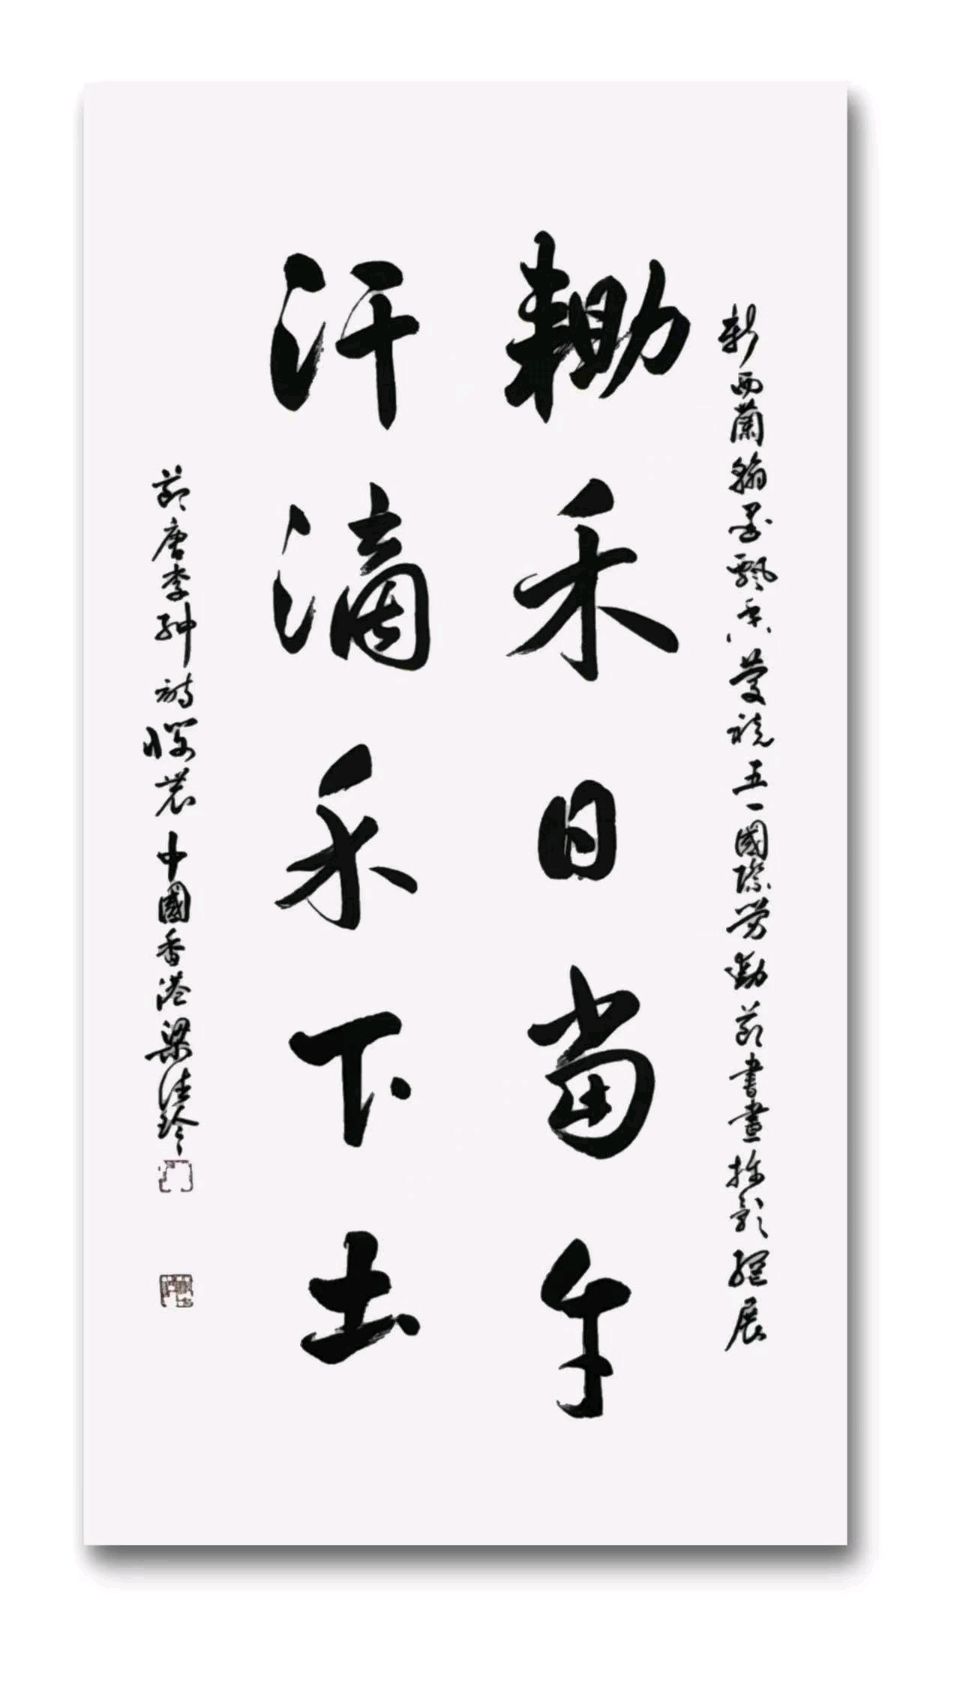 新西蘭翰墨飄香慶祝五一國際勞動節書畫攝影聯展
耡禾日當午
汗滴禾下土
節唐李紳詩憫農中國香港梁佳玲